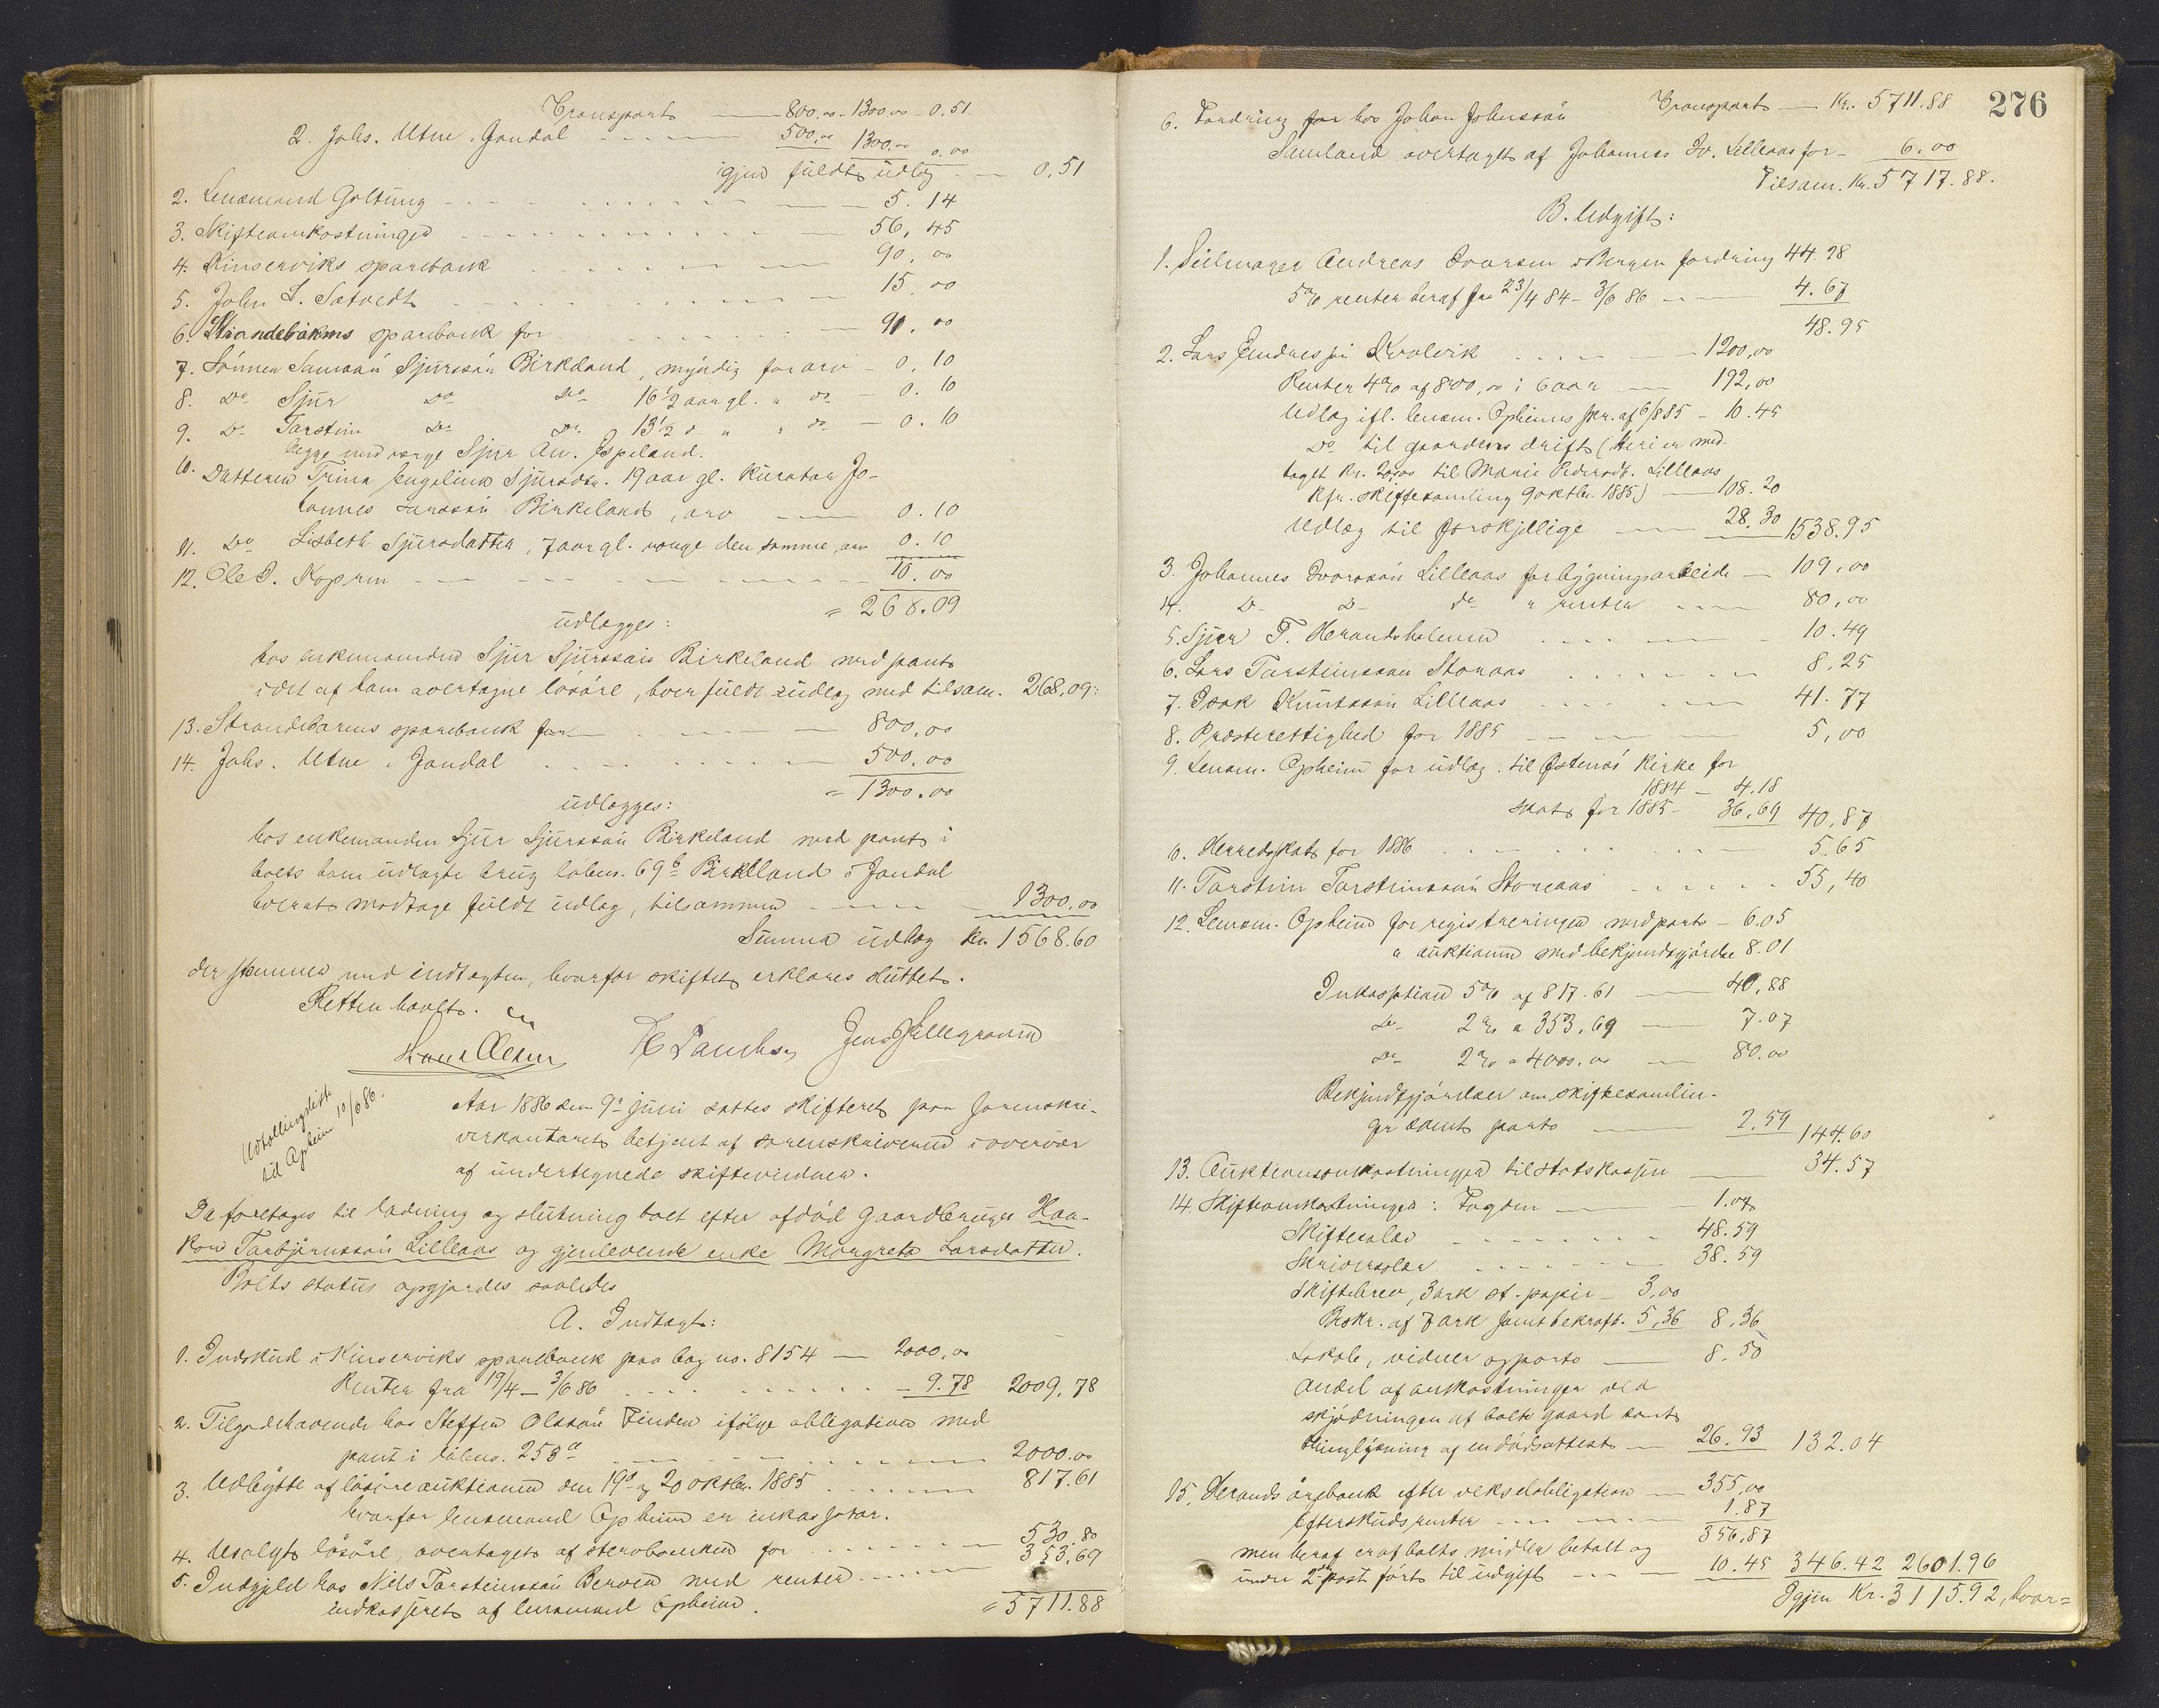 Transport 800.00 - 1300.00 - 0.51
2. Johs. Utne i Jondal 500.00 1300.00 0.00
igjen fuldt udlæg 0.51
2. Lensmand Goltung 5.14
3. Skifteomkostninger 56.45
4. Kinserviks sparebank 90.00
5. John L. Sætvedt 15.00
6. Strandebarms sparebank for 91.00
7. Sønnen Samson Sjursson Birkeland, myndig for arv 0.10
8. Do Sjur Do Do 16 1/2 aar gl. " do 0.10
9. Do Torstein Do Do 13 1/2 d " " do 0.10
begge med verge Sjur An. Espeland.
10. Datteren Trina Engeline Sjursdtr. 19 aar gl. kurator Jo-
hannes Larsson Birkeland, arv 0.10
11. Do Lisbeth Sjursdatter, 7 aar gl. verge den samme, arv 0.10
12. Ole S. Kopren 10.00
= 268.09
udlægges:
hos enkemanden Sjur Sjursson Birkeland med pant
i det af ham overtagne løsøre, hver fuldt udlæg med tilsam. 268.09:
13. Strandebarms sparebank for 800.00
14. Johs. Utne i Jondal 500.00
= 1300.00
udlægges:
hos enkemanden Sjur Sjursson Birkeland med pant i
boets ham udlagte brug løbenr. 69 b Birkeland i Jondal
hvorat modtage fuldt udlæg, tilsammen 1300.00
Summa udlæg Kr. 1568.60
der stemmer med indtægten, hvorfor skiftet erklæres sluttet.
Retten hævet.
Jens Selleground
Udlodningsliste
til Opheim 10/6 86.
Aar 1886 den 9de juni sattes skifteret paa sorenskri-
verkontoret betjent af sorenskriveren i overvær
af undertegnede skiftevidner.
Da foretages til lodning og slutning boet efter afdød gaardbruger Haa-
kon Torbjørnsson Lilleaas og gjenlevende enke Margreta Larsdatter.
Boets status opgjordes saaledes
A. Indtægt:
1. Indskud i Kinserviks sparebank paa bog no. 8154 2000.00
Renter fra 19/4 - 3/6 86 9.78 2009.78
2. Tilgodehavende hos Steffen Olsson Tinden ifølge obligation med
pant i løbenr. 253 a 2000.00
3. Udbytte af løsøreauktionen den 19de og 20 oktbr. 1885 817.61
hvorfor lensmand Opheim er inkassator.
4. Usolgt løsøre, overtaget af sterboenken for 530.80
5. Indgjeld hos Nels Torsteinsson Berven med renter 353.69
indkasseret af lensmand Opheim.
= 5711.88
276
Transport Kr. 5711.88
6. Fordring for hos Johan Johnsson
Samland overtaget af Johannes Iv. Lilleaas for 6.00
Tilsam. Kr. 5717.88.
B. Udgift:
1. Seilmager Andreas Ivarsen i Bergen fordring 44.28
5 % renter heraf fra 23/4 84 - 3/6 86 4.67
48.95
2. Lars Endresson Kvalvik 1200.00
Renter 4 % af 800.00 i 6 aar 192.00
Udlæg ifl. lensm. Opheims skr. af 6/8 85 10.45
Do til gaardens drift (heri er med-
taget Kr. 20.00 til Marie Pedersdt. Lilleaas
kfr. skiftesamling 9 oktbr. 1885) 108.20
Udlæg til forskjellige 28.30 1538.95
3. Johannes Ivarsson Lilleaas for bygningsarbeide 109.00
4. Do Do do " renter 80.00
5. Sjur T. Herandsholmen 10.49
6. Lars Torsteinsson Storaas 8.25
7. Isak Knutsson Lilleaas 41.77
8. Presterettighed for 1885 5.00
9. Lensm. Opheim for udlæg til Østensø kirke for
1884 4.18
skat for 1885 36.69 40.87
10. Herredsskat for 1886 5.65
11. Torstein Torsteinsson Storeaas 55.40
12. Lensm. Opheim for registreringen med porto 6.05
" auktionen med bekjendtgjørelse 8.01
Inkassation 5 % af 817.61 40.88
Do 2 % a 353.69 7.07
Do 2 % a 4000.00 80.00
Bekjendtgjørelser om skiftesamlin-
ger samt porto 2.59 144.60
13. Auktionsomkostninger til statskassen 34.57
14. Skifteomkostninger: Fogden 1.07
Skiftesalær 48.59
Skriversalær 38.59
Skiftebrev, 3 ark st. papir 3.00
Beskr. af 7 ark samt bekræft. 5.36 8.36
Lokale, vidner og porto 8.50
Andel af omkostninger ved
skjødningen af boets gaard samt
thinglysning af en dødsattest 26.93 132.04
15. Herands ørebank efter vekselobligation 355.00
Efterskudsrenter 1.87
356.87
men heraf er af boets midler betalt og
under 2den post ført til udgift 10.45 346.42 2601.96
Igjen Kr. 3115.92, hvor=